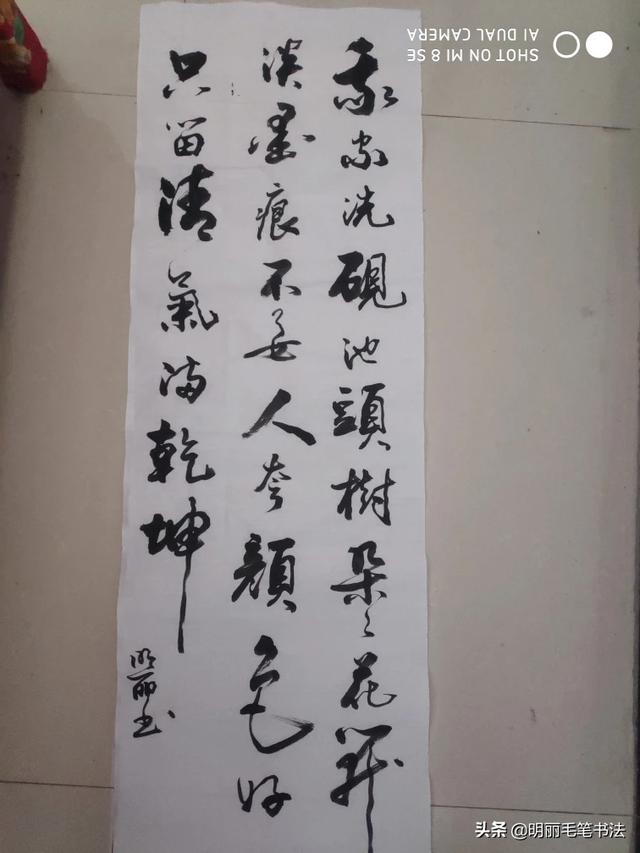 我家洗硯池頭樹朵々花開
淡墨痕不要人夸顏色好
只留清氣満乾坤
明丽书
SHOT ON MI 8 SE
AI DUAL CAMERA
头条 @明丽毛笔书法